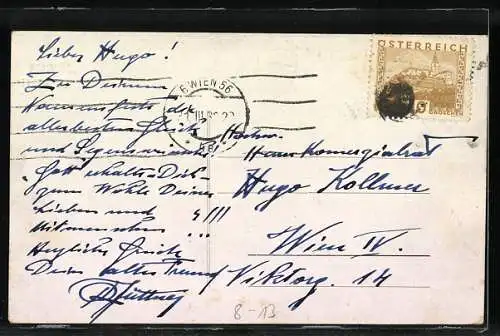 Lieber Hugo!
Zu Deinem
Namensfeste die
allerbesten Glück
und Segenswünsche
Gott erhalte Dich
zum Wohle Deiner
Lieben und
Mitmenschen !!!
Herzliche Grüße
Dein alter Freund
ÖSTERREICH
6 WIEN 56
Hochw.
Herrn Komerzialrat
Hugo Kollmer
Wien IV.
Viktorg. 14
8-13